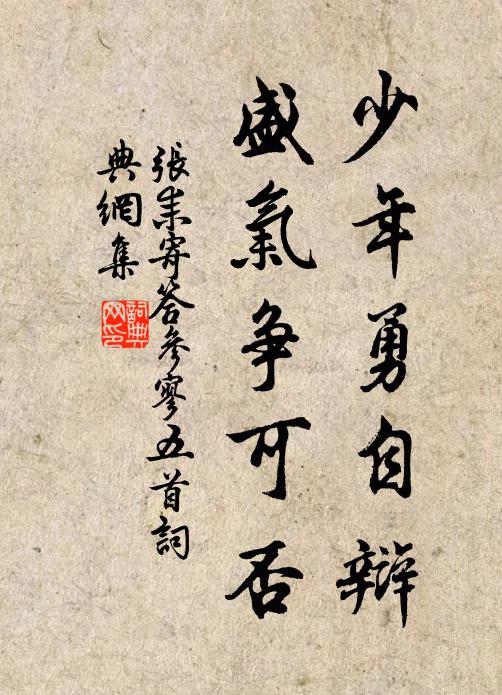 少年勇自辯
盛氣爭可否
張耒寄答參寥五首詞
典網集
詞典
网印